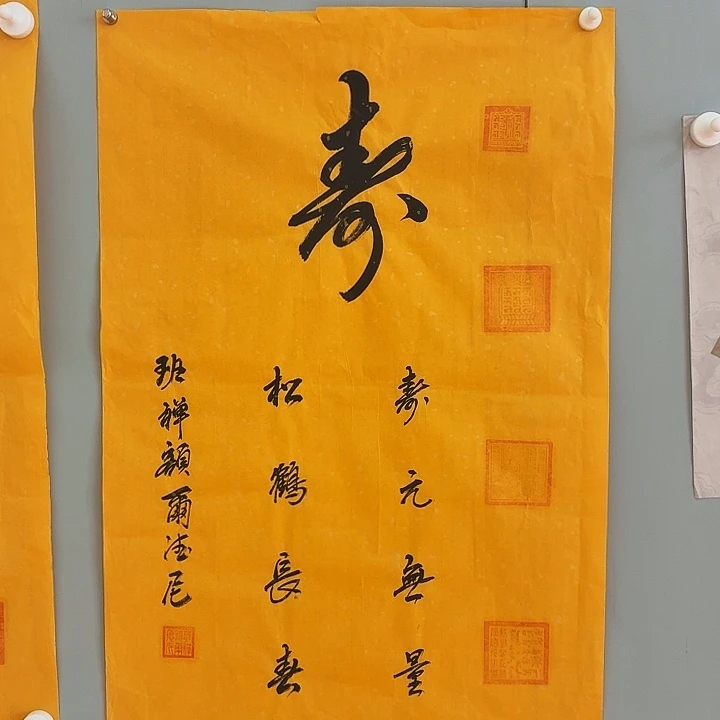 寿
寿元無量
松鶴長春
班禪額爾德尼